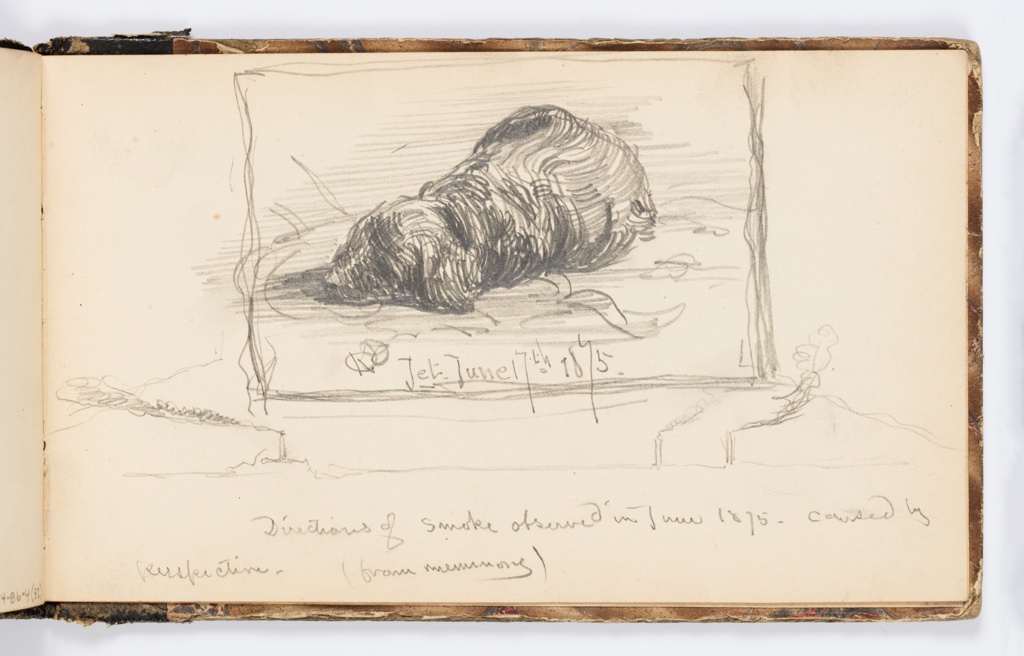 Jet. June 17th 1875.
Directions of Smoke observed in June 1875. caused by
perspective. (from memmory)